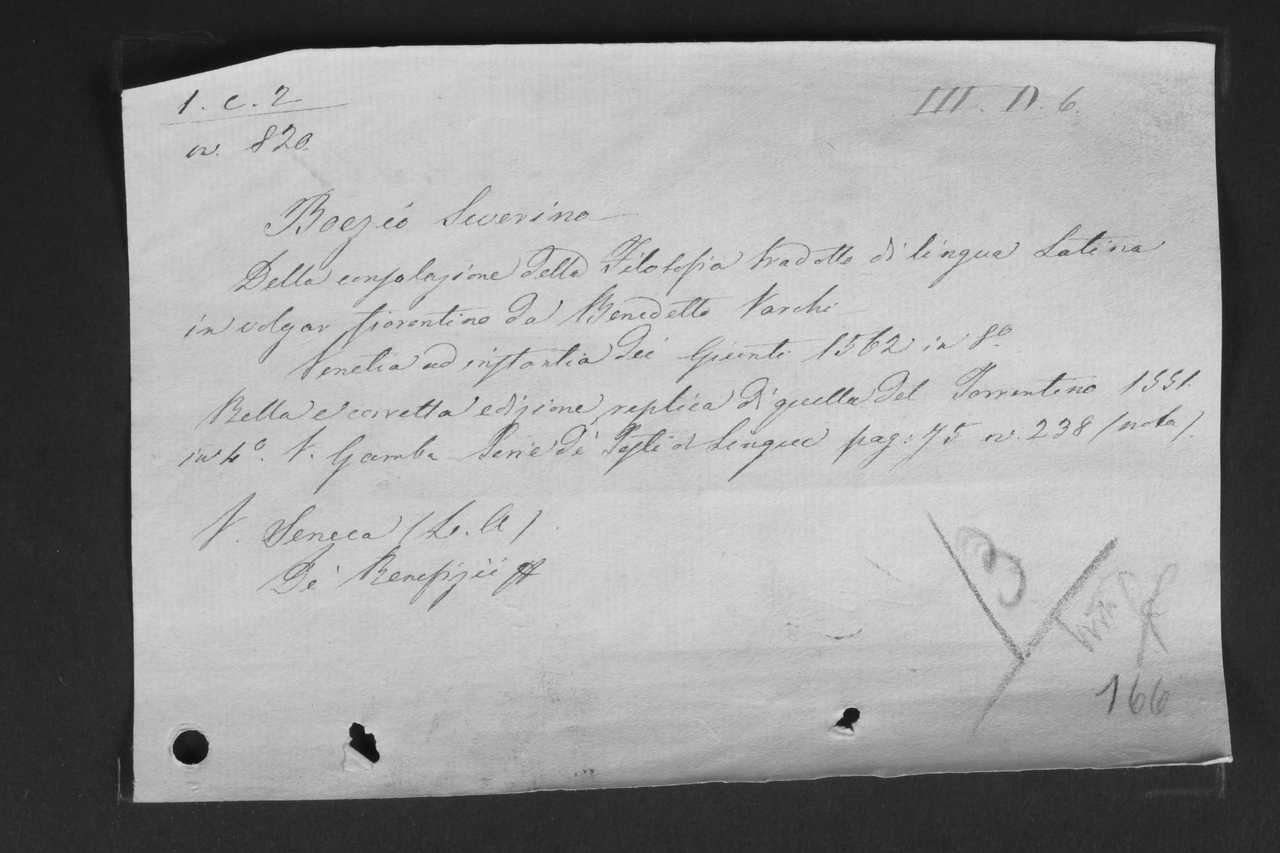 1. C. 2
III. D. 6.
n. 820.
Boezio Severino
Della consolazione della Filosofia tradotto di lingua Latina
in volgar fiorentino da Benedetto Varchi
Venetia ad instantia dei Giunti 1562 in 8.º
Bella e corretta edizione replica di quella del Torrentino 1551.
in 4º. V. Gamba Serie de' Testi di Lingua pag: 75 n. 238 (nota).
V. Seneca (L. A)
De' Benefizii
3
166